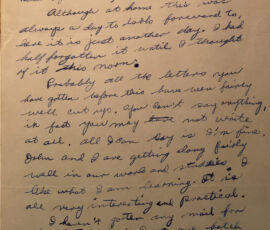 Although at home this was
always a day to look forward to,
here it is just another day. I had
half forgotten it until I thought
of it this morn.
Probably all the letters you
have gotten before this have been fairly
well cut up. You can't say anything,
in fact you may not write
at all, all I can say is I'm fine.
John and I are getting along fairly
well in our work and studies. I
like what I am learning. It is
all very interesting and practical.
I haven't gotten any mail for